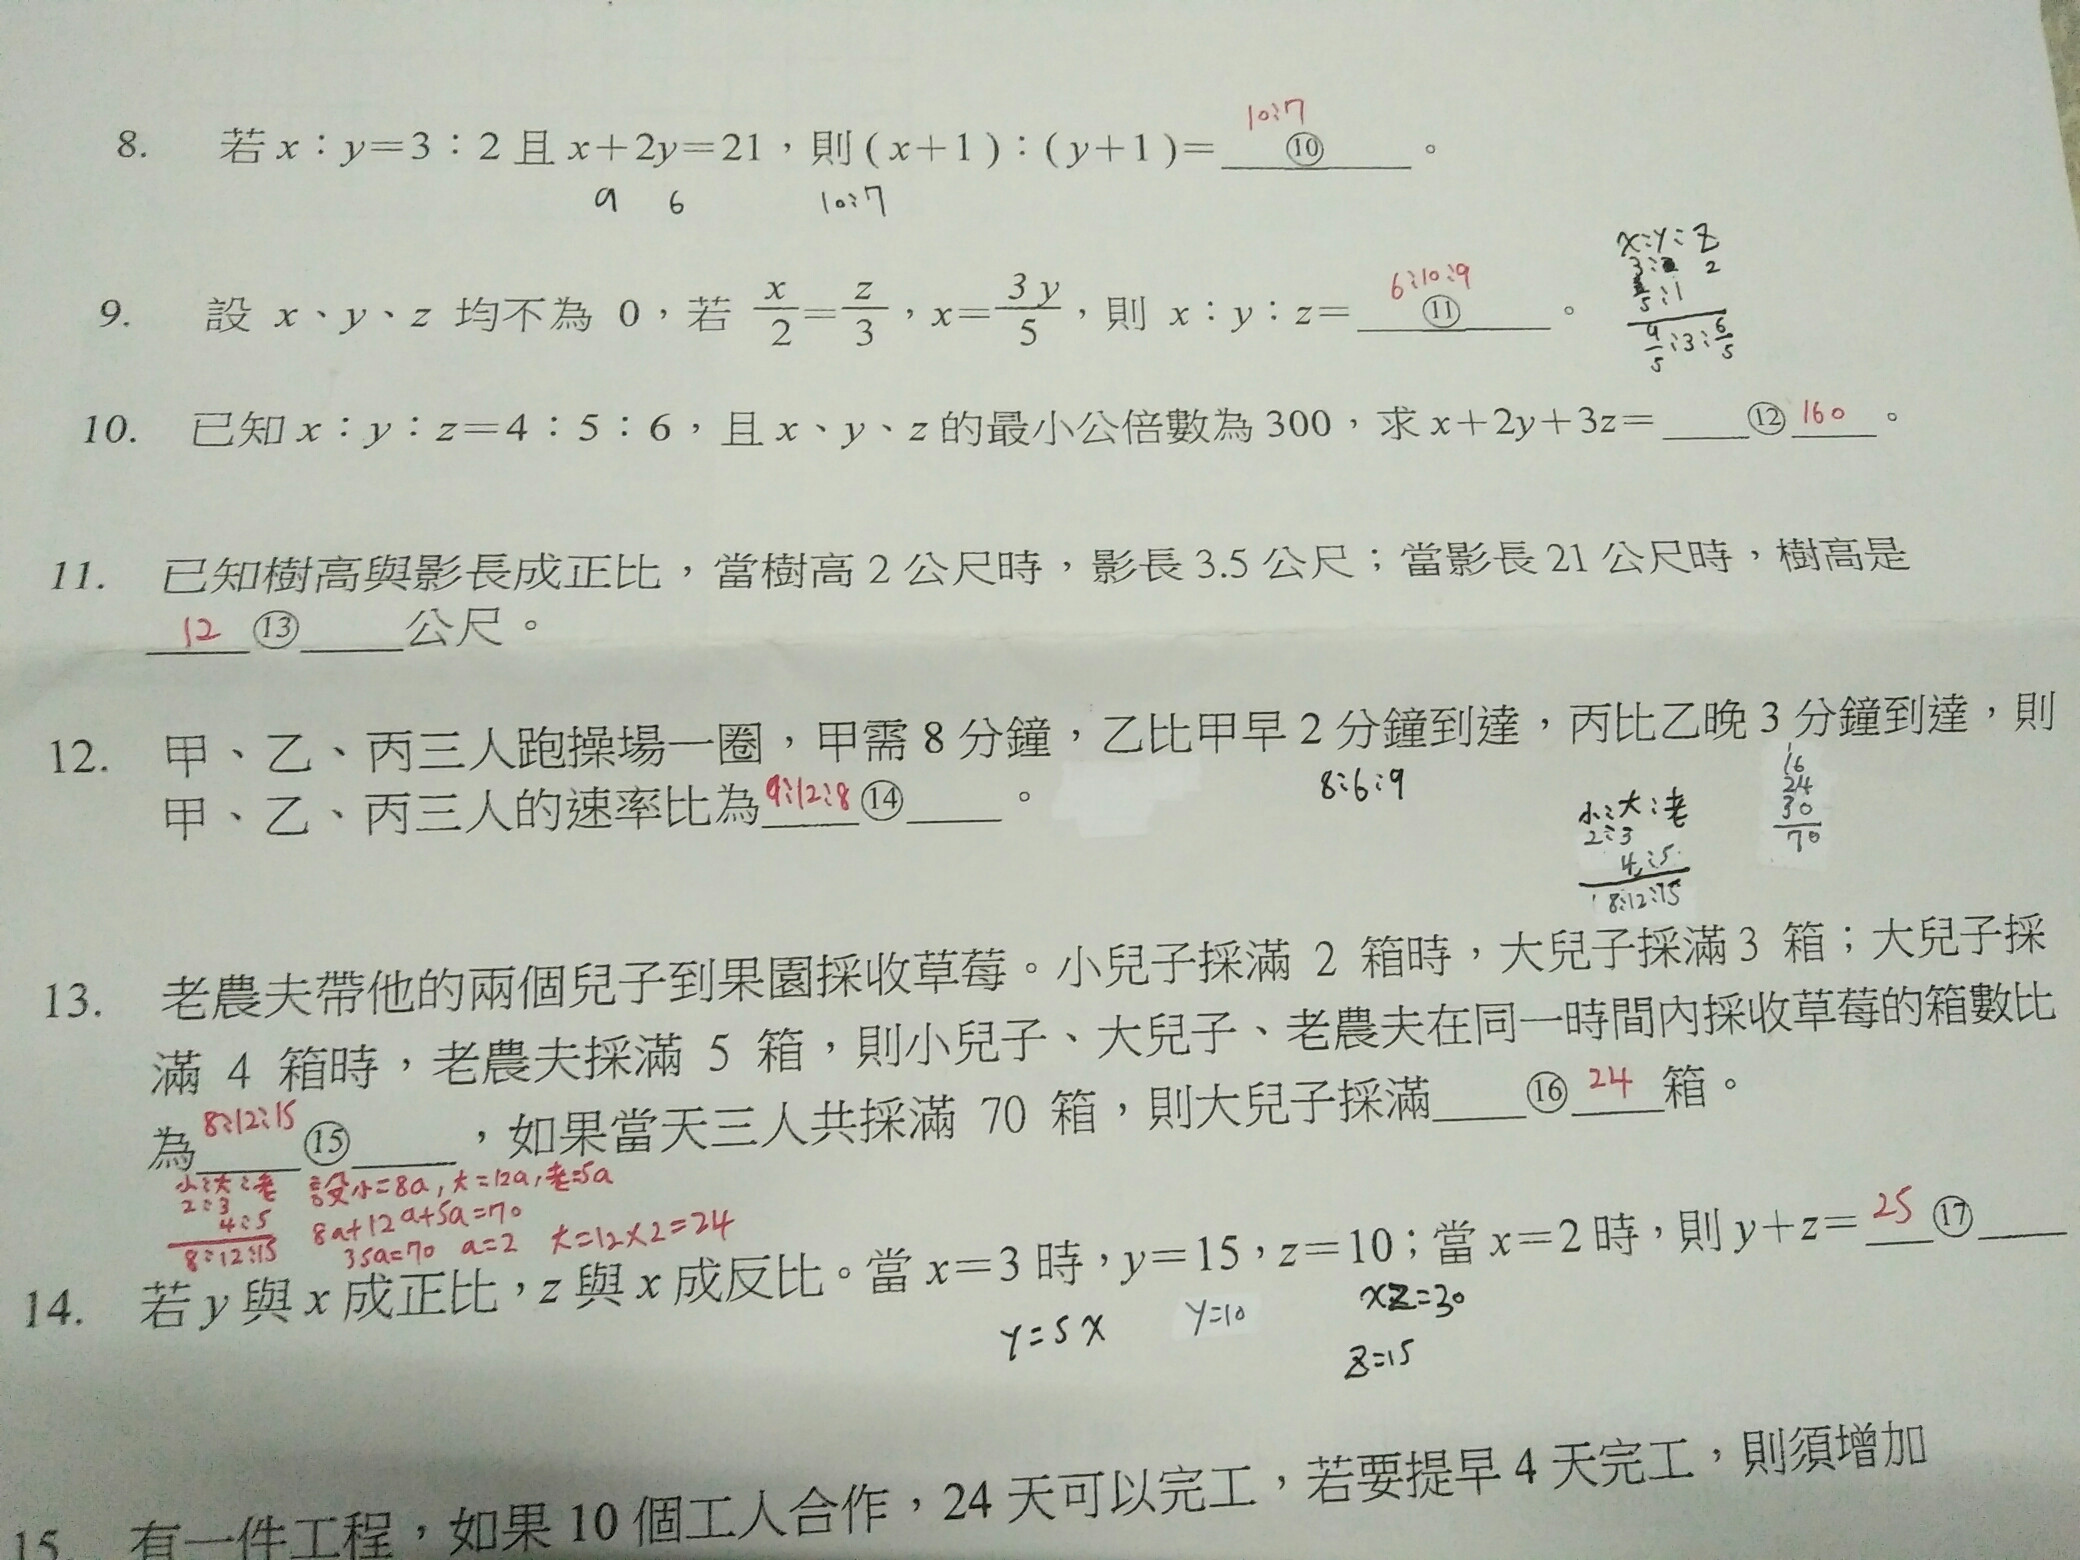 10:7
8. 若 x：y＝3：2 且 x＋2y＝21，則 ( x＋1 )：( y＋1 )＝⑩。
9 6 10:7
6:10:9
9. 設 x、y、z 均不為 0，若 x/2＝z/3，x＝3y/5，則 x：y：z＝⑪。
x:y:z
10. 已知 x：y：z＝4：5：6，且 x、y、z 的最小公倍數為 300，求 x＋2y＋3z＝⑫ 160。
11. 已知樹高與影長成正比，當樹高 2 公尺時，影長 3.5 公尺；當影長 21 公尺時，樹高是
12 ⑬ 公尺。
12. 甲、乙、丙三人跑操場一圈，甲需 8 分鐘，乙比甲早 2 分鐘到達，丙比乙晚 3 分鐘到達，則
甲、乙、丙三人的速率比為 9:12:8 ⑭。
8:6:9
小:大:老
2:3
4:5
8:12:15
16
24
30
70
13. 老農夫帶他的兩個兒子到果園採收草莓。小兒子採滿 2 箱時，大兒子採滿 3 箱；大兒子採
滿 4 箱時，老農夫採滿 5 箱，則小兒子、大兒子、老農夫在同一時間內採收草莓的箱數比
為 8:12:15 ⑮，如果當天三人共採滿 70 箱，則大兒子採滿 ⑯ 24 箱。
小:大:老
2:3
4:5
8:12:15
設小=8a, 大=12a, 老=5a
8a+12a+5a=70
35a=70 a=2 大=12×2=24
14. 若 y 與 x 成正比，z 與 x 成反比。當 x＝3 時，y＝15，z＝10；當 x＝2 時，則 y＋z＝25 ⑰
y=5x y=10 xz=30
z=15
15. 有一件工程，如果 10 個工人合作，24 天可以完工，若要提早 4 天完工，則須增加